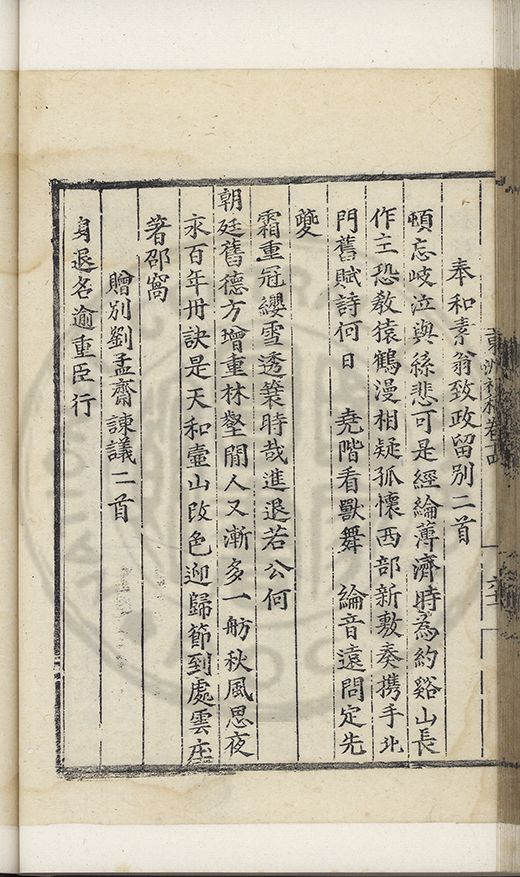 奉和素翁致政留別二首
頓忘岐泣與絲悲可是經綸薄濟時為約谿山長
作主恐教猿鶴漫相疑孤懷西部新敷奏携手北
門舊賦詩何日 堯階看獸舞 綸音遠問定先
夔
霜重冠纓雪透簑時哉進退若公何
朝廷舊德方增重林壑閒人又漸多一舫秋風思夜
永百年丹訣是天和壷山改色迎歸節到處雲庄
著邵窩
贈別劉孟齋諫議二首
身退名逾重臣行